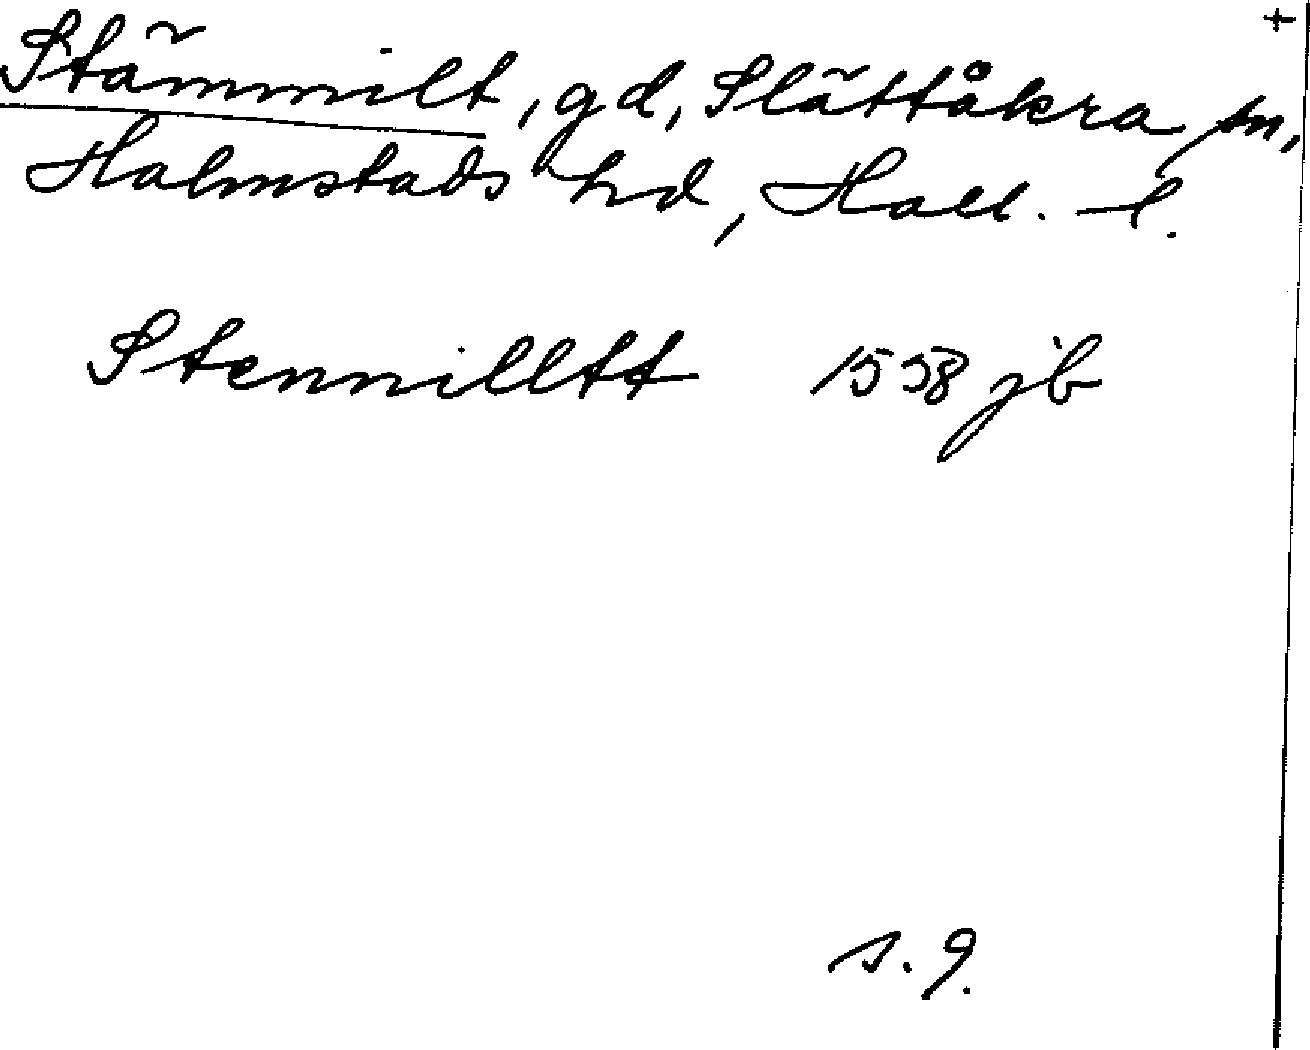 +
Stämmilt, gd, Slättåkra sn,
Halmstads hd, Hall. l.
Stennilltt 1558 jb
s. 9.